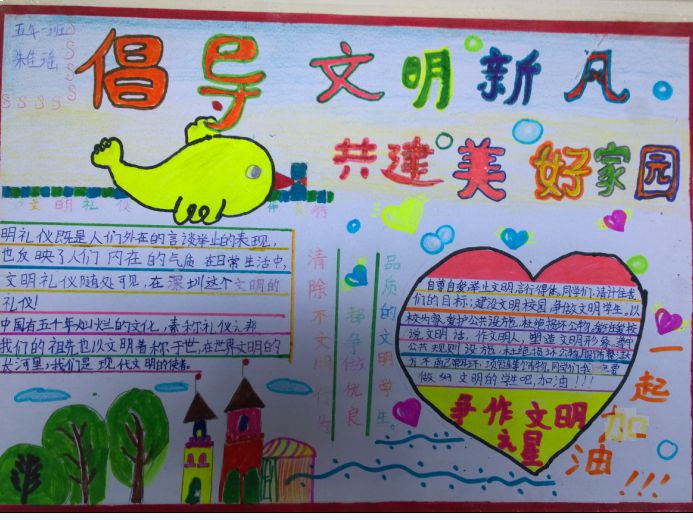 五年一班
倡导文明新风
共建美好家园
文明礼仪
明礼仪既是人们外在的言谈举止的表现,
也反映了人们内在的气质在日常生活中,
文明礼仪随处可见,在深圳这个文明的
礼仪!
中国有五千年灿烂的文化,素称礼仪之邦
我们的祖先也以文明著称于世,在世界文明的
长河里,我们是现代文明的使者。
清除不文明行为
争做优良
品质的文明学生。
自尊自爱,举止文明,言行得体。同学们,请记住我
们的目标:建设文明校园争做文明学生。以
校为家,爱护公共设施,杜绝损坏公物,
说文明话,作文明人,塑造文明形象,遵守
公共规则设施,杜绝损坏公物
同学们我一定要
做好文明的学生吧,加油!!!
争作文明
之星
一起加油!!!